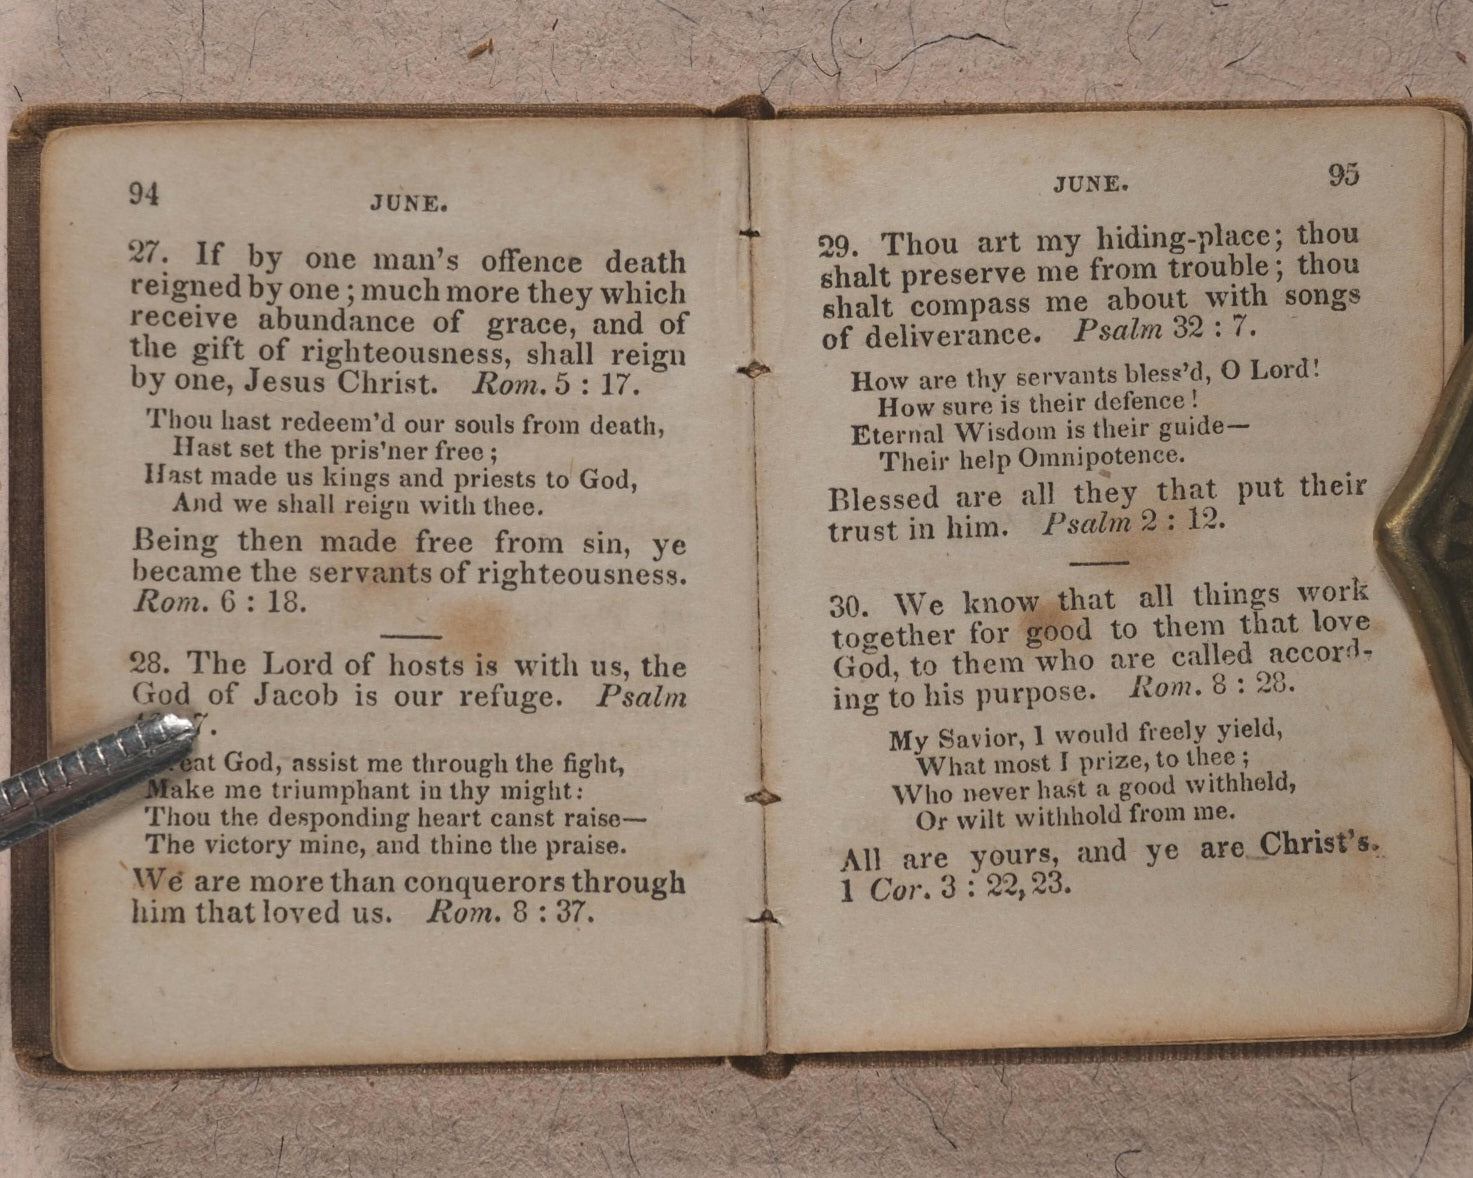 94
JUNE.
27. If by one man's offence death
reigned by one; much more they which
receive abundance of grace, and of
the gift of righteousness, shall reign
by one, Jesus Christ. Rom. 5 : 17.
Thou hast redeem'd our souls from death,
Hast set the pris'ner free;
Hast made us kings and priests to God,
And we shall reign with thee.
Being then made free from sin, ye
became the servants of righteousness.
Rom. 6 : 18.
28. The Lord of hosts is with us, the
God of Jacob is our refuge. Psalm
7.
God, assist me through the fight,
Make me triumphant in thy might:
Thou the desponding heart canst raise—
The victory mine, and thine the praise.
We are more than conquerors through
him that loved us. Rom. 8 : 37.
JUNE.
95
29. Thou art my hiding-place; thou
shalt preserve me from trouble; thou
shalt compass me about with songs
of deliverance. Psalm 32 : 7.
How are thy servants bless'd, O Lord!
How sure is their defence!
Eternal Wisdom is their guide—
Their help Omnipotence.
Blessed are all they that put their
trust in him. Psalm 2 : 12.
30. We know that all things work
together for good to them that love
God, to them who are called accord-
ing to his purpose. Rom. 8 : 28.
My Savior, I would freely yield,
What most I prize, to thee;
Who never hast a good withheld,
Or wilt withhold from me.
All are yours, and ye are Christ's.
1 Cor. 3 : 22, 23.